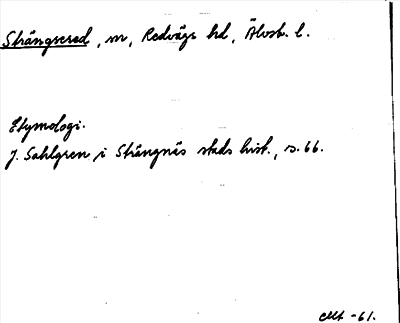 Strängsered, m, Redvägs hd, Älvsb. l.
Etymologi.
J. Sahlgren i Strängnäs stads hist., s. 66.
-61.